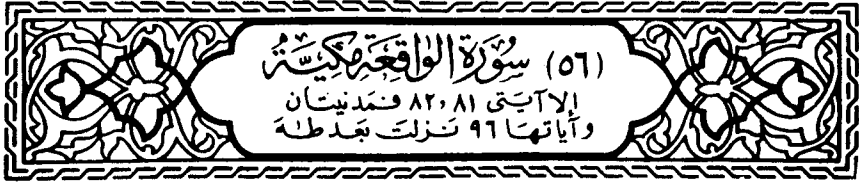 (٥٦) سُورَةُ الوَاقِعَةِ مَكِيَّةٌ
إلا آيَتَى ٨١ ، ٨٢ فَمَدَنيَتَان
وآيَاتهَا ٩٦ نَزَلَتْ بَعْد طَهَ